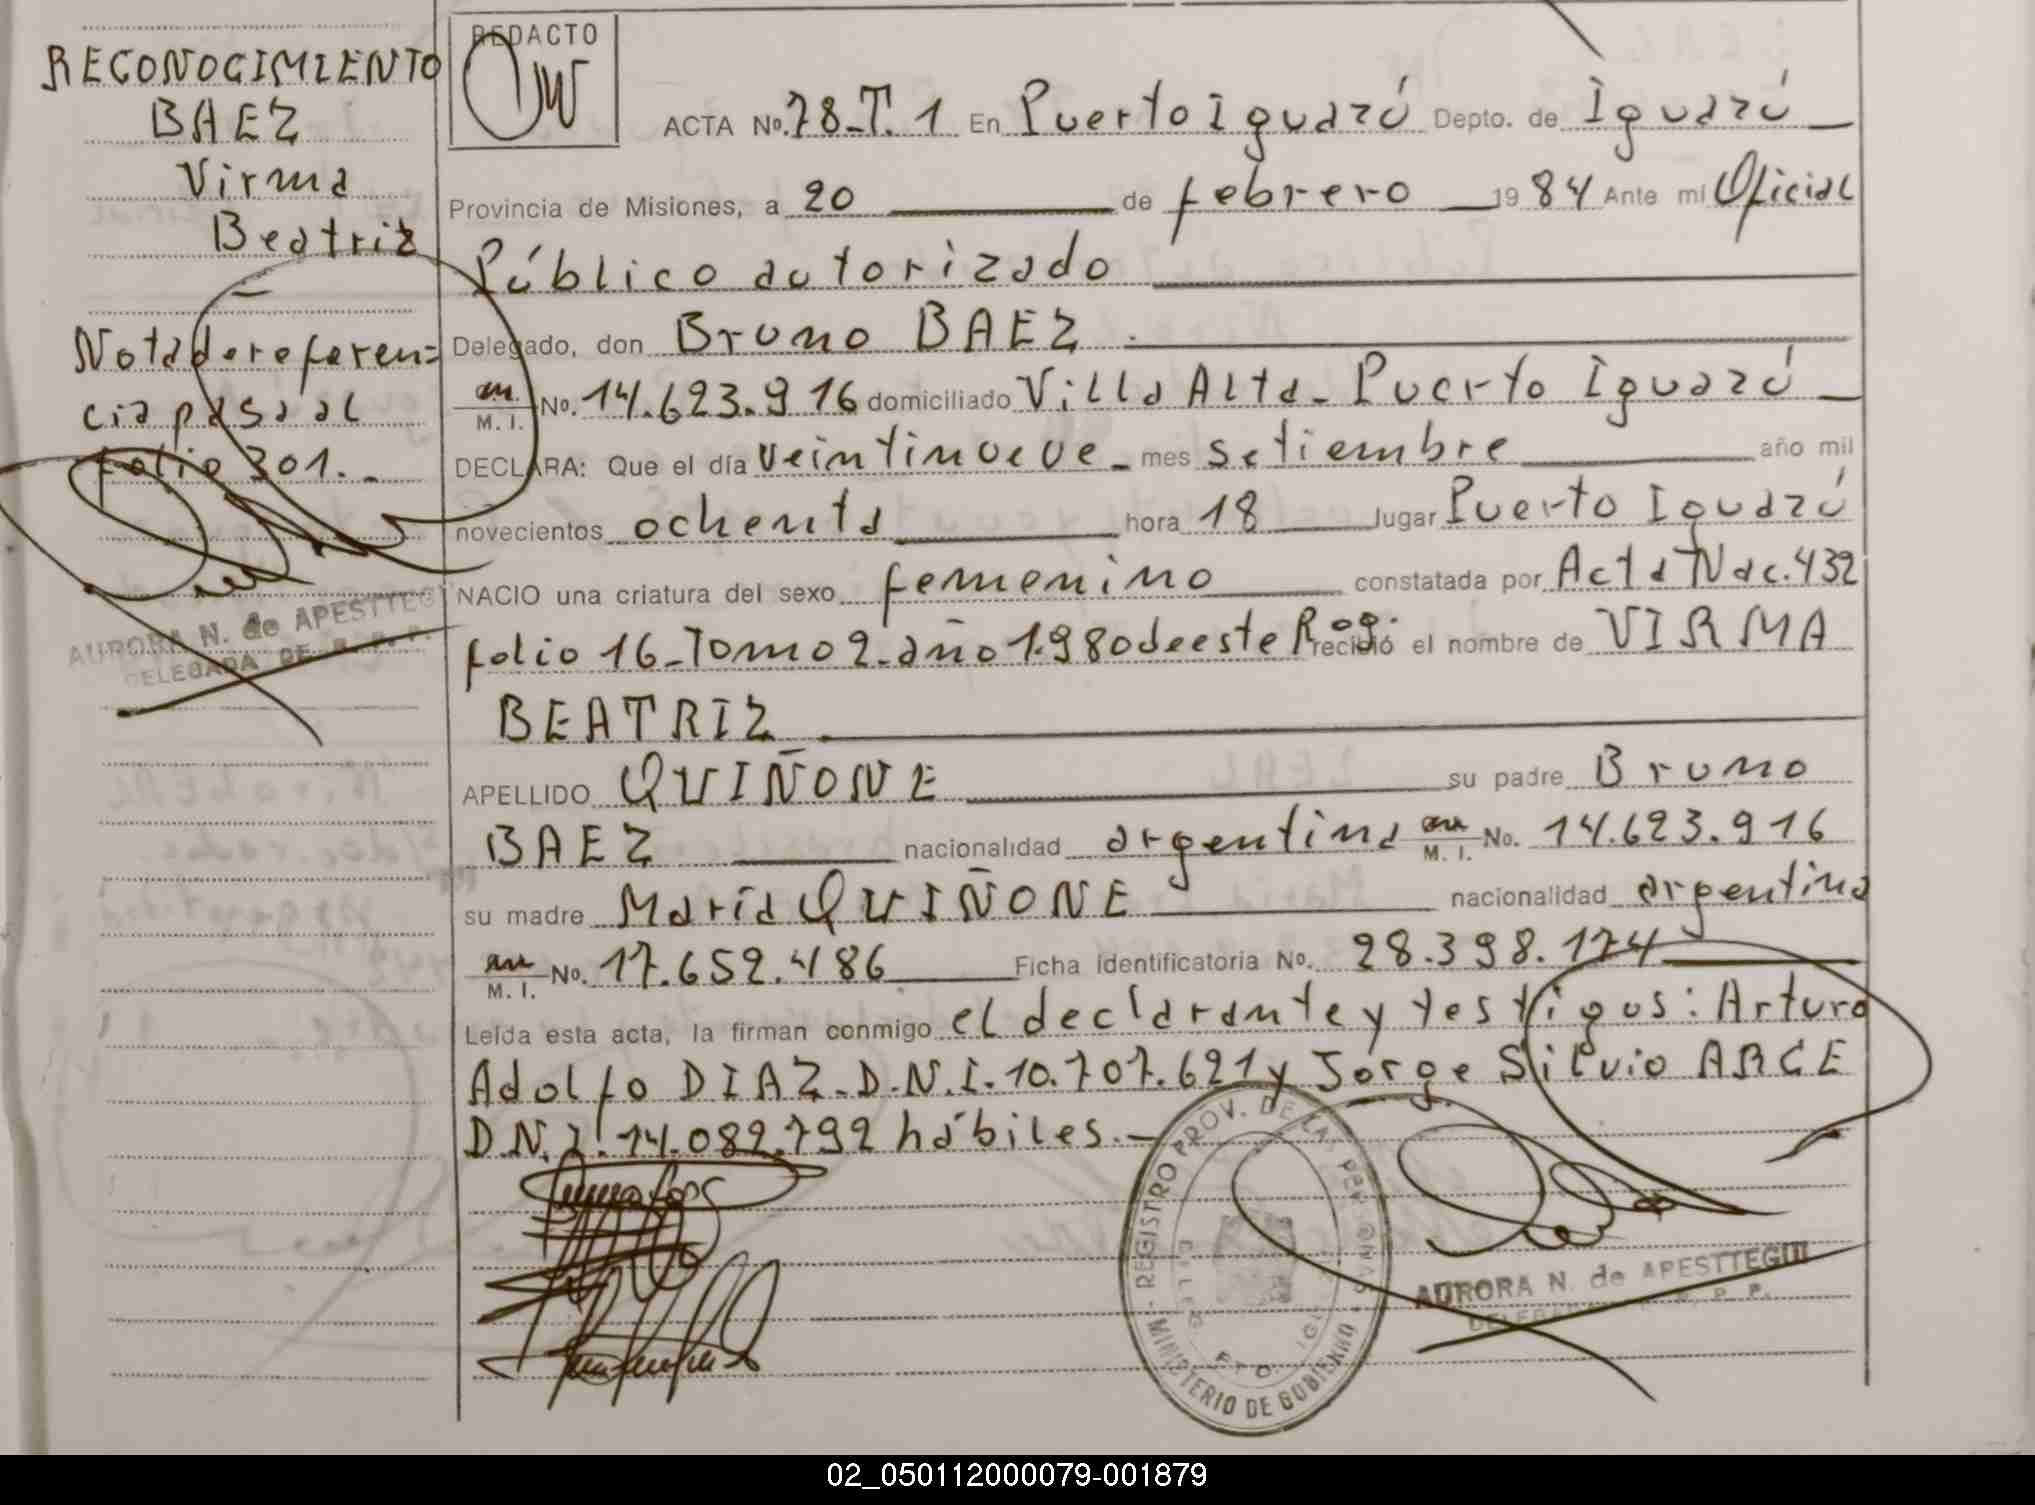 RECONOCIMIENTO
BAEZ
Virma
Beatriz
Nota de referen=
cia pasa al
folio 301.-
AURORA N. de APESTTEGUI
DELEGADA DE R. P. P.
REDACTO
ACTA No. 78-T. 1 En Puerto Iguazú Depto. de Iguazú
Provincia de Misiones, a 20 de febrero 1984 Ante mi Oficial
Público autorizado
Delegado, don Bruno BAEZ
M. I. No. 14.623.916 domiciliado Villa Alta - Puerto Iguazú
DECLARA: Que el día veintinueve - mes setiembre año mil
novecientos ochenta hora 18 lugar Puerto Iguazú
NACIO una criatura del sexo femenino constatada por Acta Nac. 432
folio 16 - Tomo 2 - año 1.980 de este Reg. recibió el nombre de VIRMA
BEATRIZ
APELLIDO QUIÑONE su padre Bruno
BAEZ nacionalidad argentina M. I. No. 14.623.916
su madre María QUIÑONE nacionalidad argentina
M. I. No. 17.652.486 Ficha identificatoria No. 28.398.174
Leída esta acta, la firman conmigo el declarante y testigos: Arturo
Adolfo DIAZ - D.N.I. 10.707.621 y Jorge Silvio ARCE
D.N.I. 14.082.792 hábiles.-
REGISTRO PROV. DE LAS PERSONAS
MINISTERIO DE GOBIERNO
AURORA N. de APESTTEGUI
02_050112000079-001879